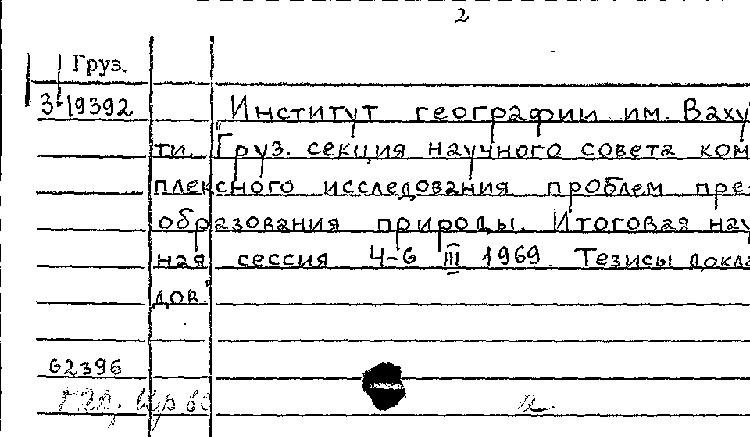 2
Груз.
3-19392 Институт географии им. Ваху
ти. "Груз. секция научного совета ком
плексного исследования проблем пре
образования природы. Итоговая науч
ная сессия 4-6 III 1969 Тезисы докла
дов."
62396